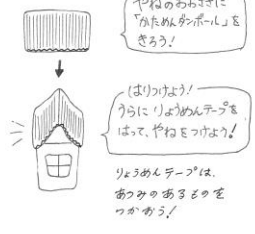 やねのおおきさに
「かためんダンボール」を
きろう！
はりつけよう！
うらに りょうめんテープを
はって、やねをつけよう！
りょうめんテープは、
あつみのあるものを
つかおう！